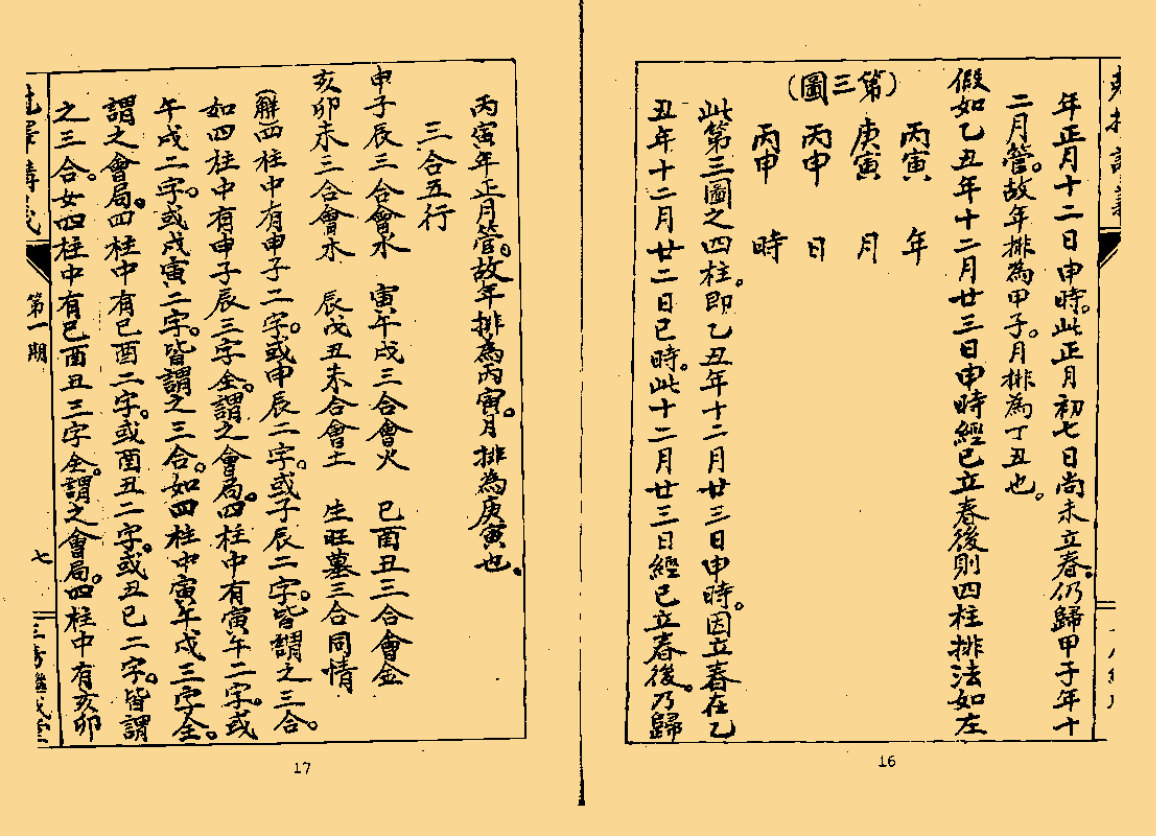 年正月十二日申時。此正月初七日尚未立春。仍歸甲子年十
二月管。故年排為甲子。月排為丁丑也。
假如乙丑年十二月廿三日申時經已立春後則四柱排法如左
(第三圖)
丙寅 年
庚寅 月
丙申 日
丙申 時
此第三圖之四柱。即乙丑年十二月廿三日申時。因立春在乙
丑年十二月廿二日巳時。此十二月廿三日經已立春後。乃歸
16
丙寅年正月管。故年排為丙寅。月排為庚寅也。
三合五行
申子辰三合會水 寅午戌三合會火 巳酉丑三合會金
亥卯未三合會木 辰戊丑未合會土 生旺墓三合同情
(解)四柱中有申子二字。或申辰二字。或子辰二字。皆謂之三合。
如四柱中有申子辰三字全。謂之會局。四柱中有寅午二字。或
午戌二字。或戌寅二字。皆謂之三合。如四柱中寅午戌三字全。
謂之會局。四柱中有巳酉二字。或酉丑二字。或丑巳二字。皆謂
之三合。女四柱中有巳酉丑三字全。謂之會局。四柱中有亥卯
第一期
七
17